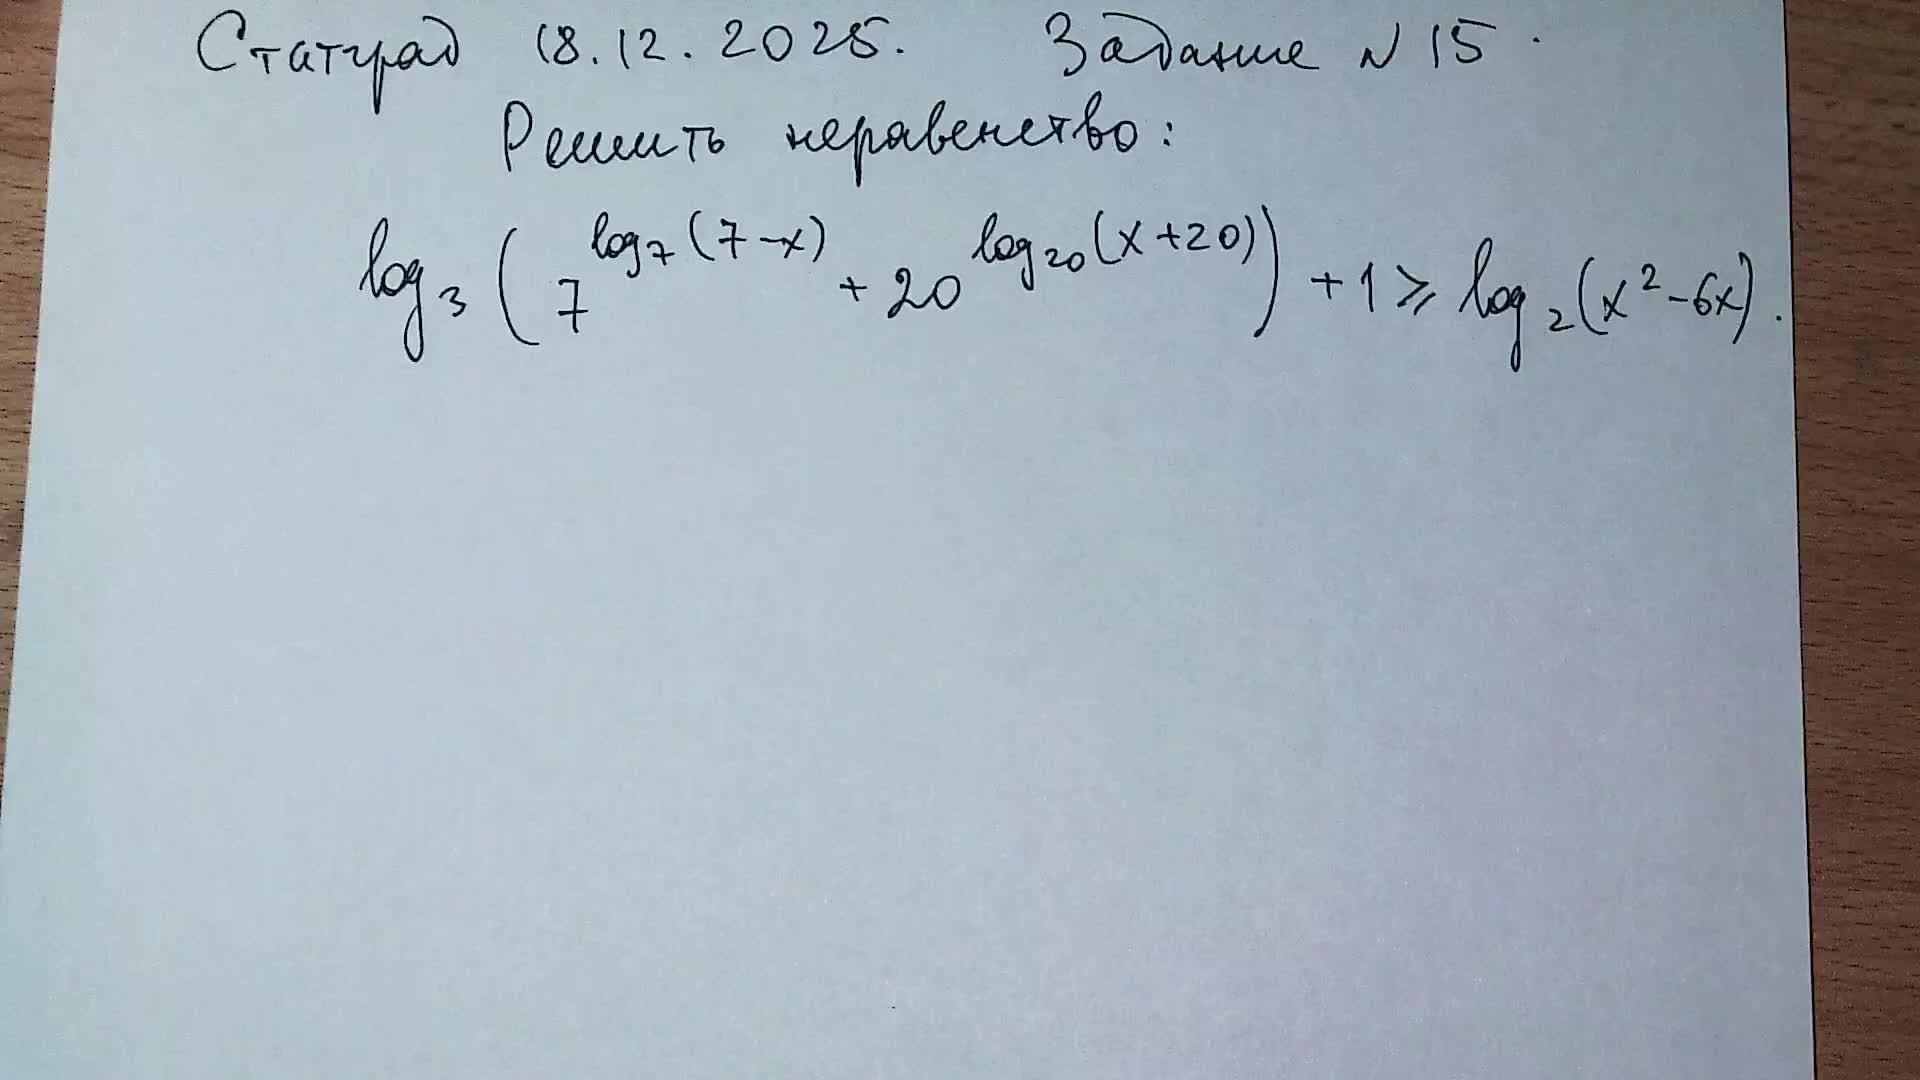 Статград 18.12.2025. Задание N 15.
Решить неравенство:
log₃ (7^(log₇(7-x)) + 20^(log₂₀(x+20))) + 1 ⩾ log₂(x²-6x).